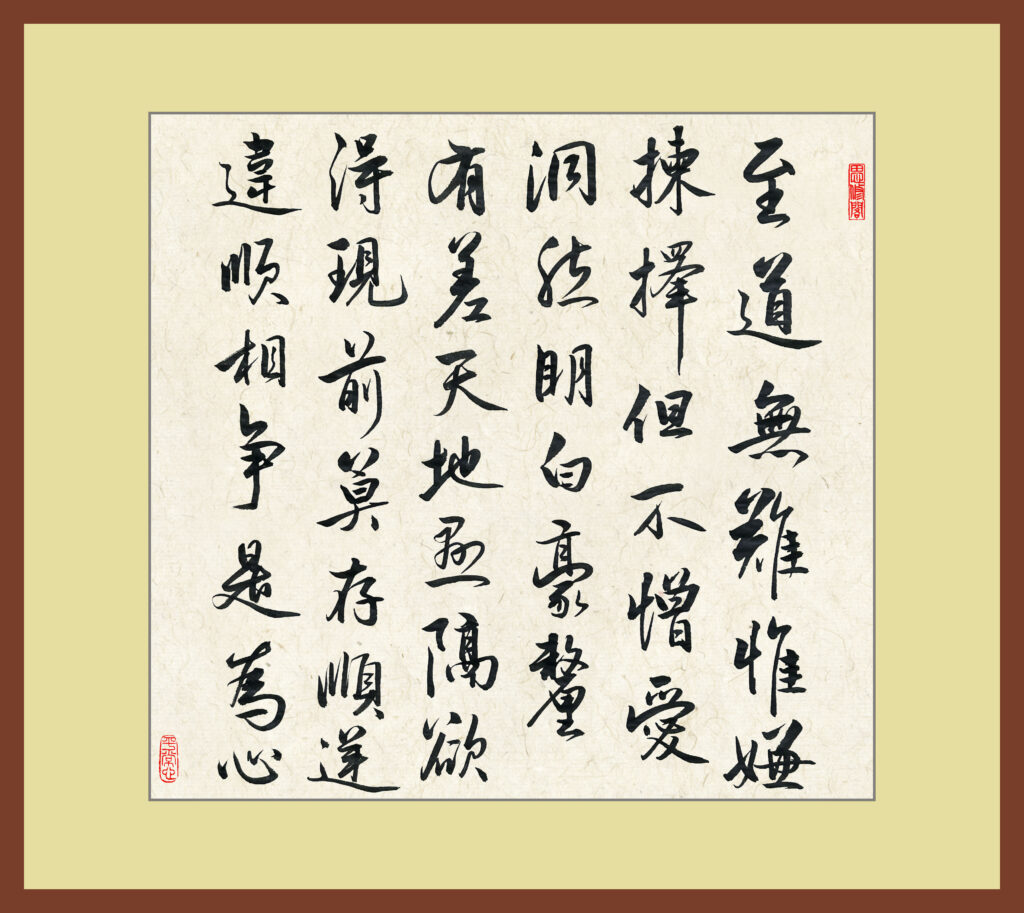 思修閣
至道無難惟嫌
揀擇但不憎愛
洞然明白豪釐
有差天地懸隔欲
得現前莫存順逆
違順相争是為心
平常心